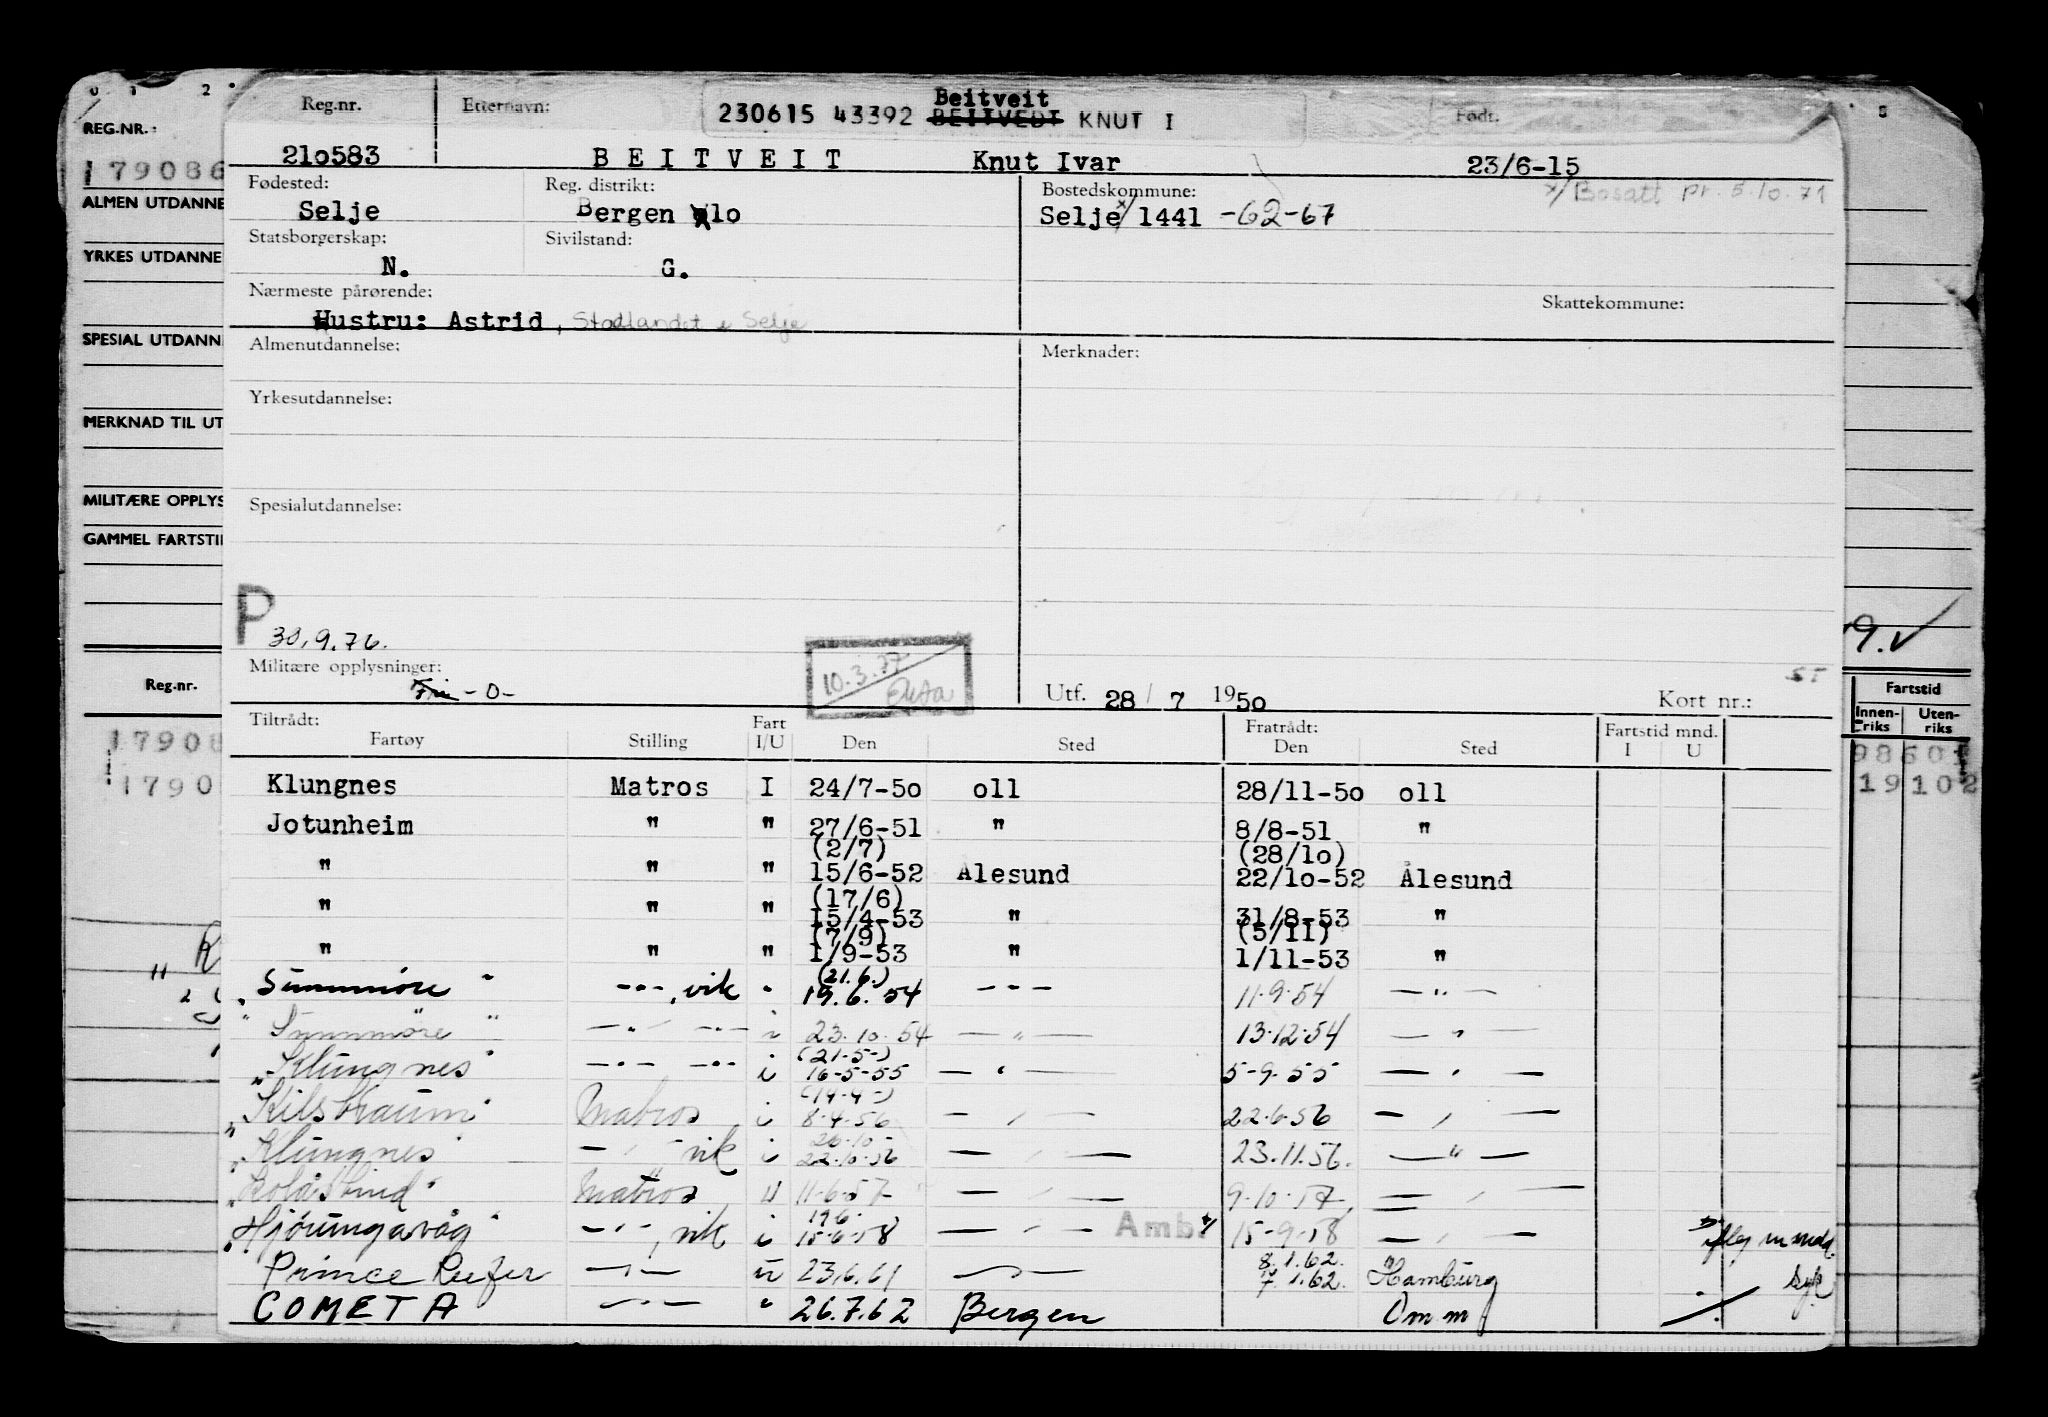 0 1 2
8
REG.NR.:
179086
ALMEN UTDANNE
YRKES UTDANNE
SPESIAL UTDANN
MERKNAD TIL UT
MILITÆRE OPPLYS
GAMMEL FARTSTI
Reg.nr.
17908
1790
Reg.nr. Etternavn: Født.
Beitveit
230615 43392 BEITVEDT KNUT I
21o583 BEITVEIT Knut Ivar 23/6-15
Fødested: Reg. distrikt: Bostedskommune: x/Bosatt pr. 5.10.71
Selje Bergen olo Selje x/ 1441 -62-67
Statsborgerskap: Sivilstand:
N. G.
Nærmeste pårørende: Skattekommune:
Hustru: Astrid, Stadlandet i Selje
Almenutdannelse: Merknader:
Yrkesutdannelse:
Spesialutdannelse:
P 30.9.76.
10.3.77
Militære opplysninger:
Fri -0-
Utf. 28/ 7 1950 Kort nr.: ST
9.√
Tiltrådt: Fratrådt: Fartstid mnd.
Fartøy Stilling Fart I/U Den Sted Den Sted I U
Fartstid
Innenriks Utenriks
98 601
19 102
Klungnes Matros I 24/7-5o oll 28/11-5o oll
Jotunheim " " 27/6-51 " 8/8-51 "
(2/7) (28/1o)
" " " 15/6-52 Ålesund 22/1o-52 Ålesund
(17/6)
" " " 15/4-53 " 31/8-53 "
(7/9) (5/11)
" " " 1/9-53 " 1/11-53 "
(21.6.)
"Sunnmøre" -"-, vik " 19.6.54 -"- 11.9.54 -"-
"Sunnmøre" -"- -"- i 23.10.54 -"- 13.12.54 -"-
(21-5-)
"Klungnes" -"- -"- i 16-5-55 -"- 5-9-55 -"-
(14-4-)
"Kilstraum" Matros i 8-4-56 -"- 22.6.56 -"-
26.10-
"Klungnes" -"- vik i 22.10.56 -"- 23.11.56. -"-
"Kolåstind" Matros u 11-6-57 -"- 9.10.57 -"-
196-
"Hjørungavåg" -"-, vik i 15-6-58 -"- Amb. 15-9-58 -"-
8.1.62.
Prince Reefer -"- u 23.6.61 -"- 7.1.62. Hamburg
COMETA -"- " 26.7.62 Bergen Omm